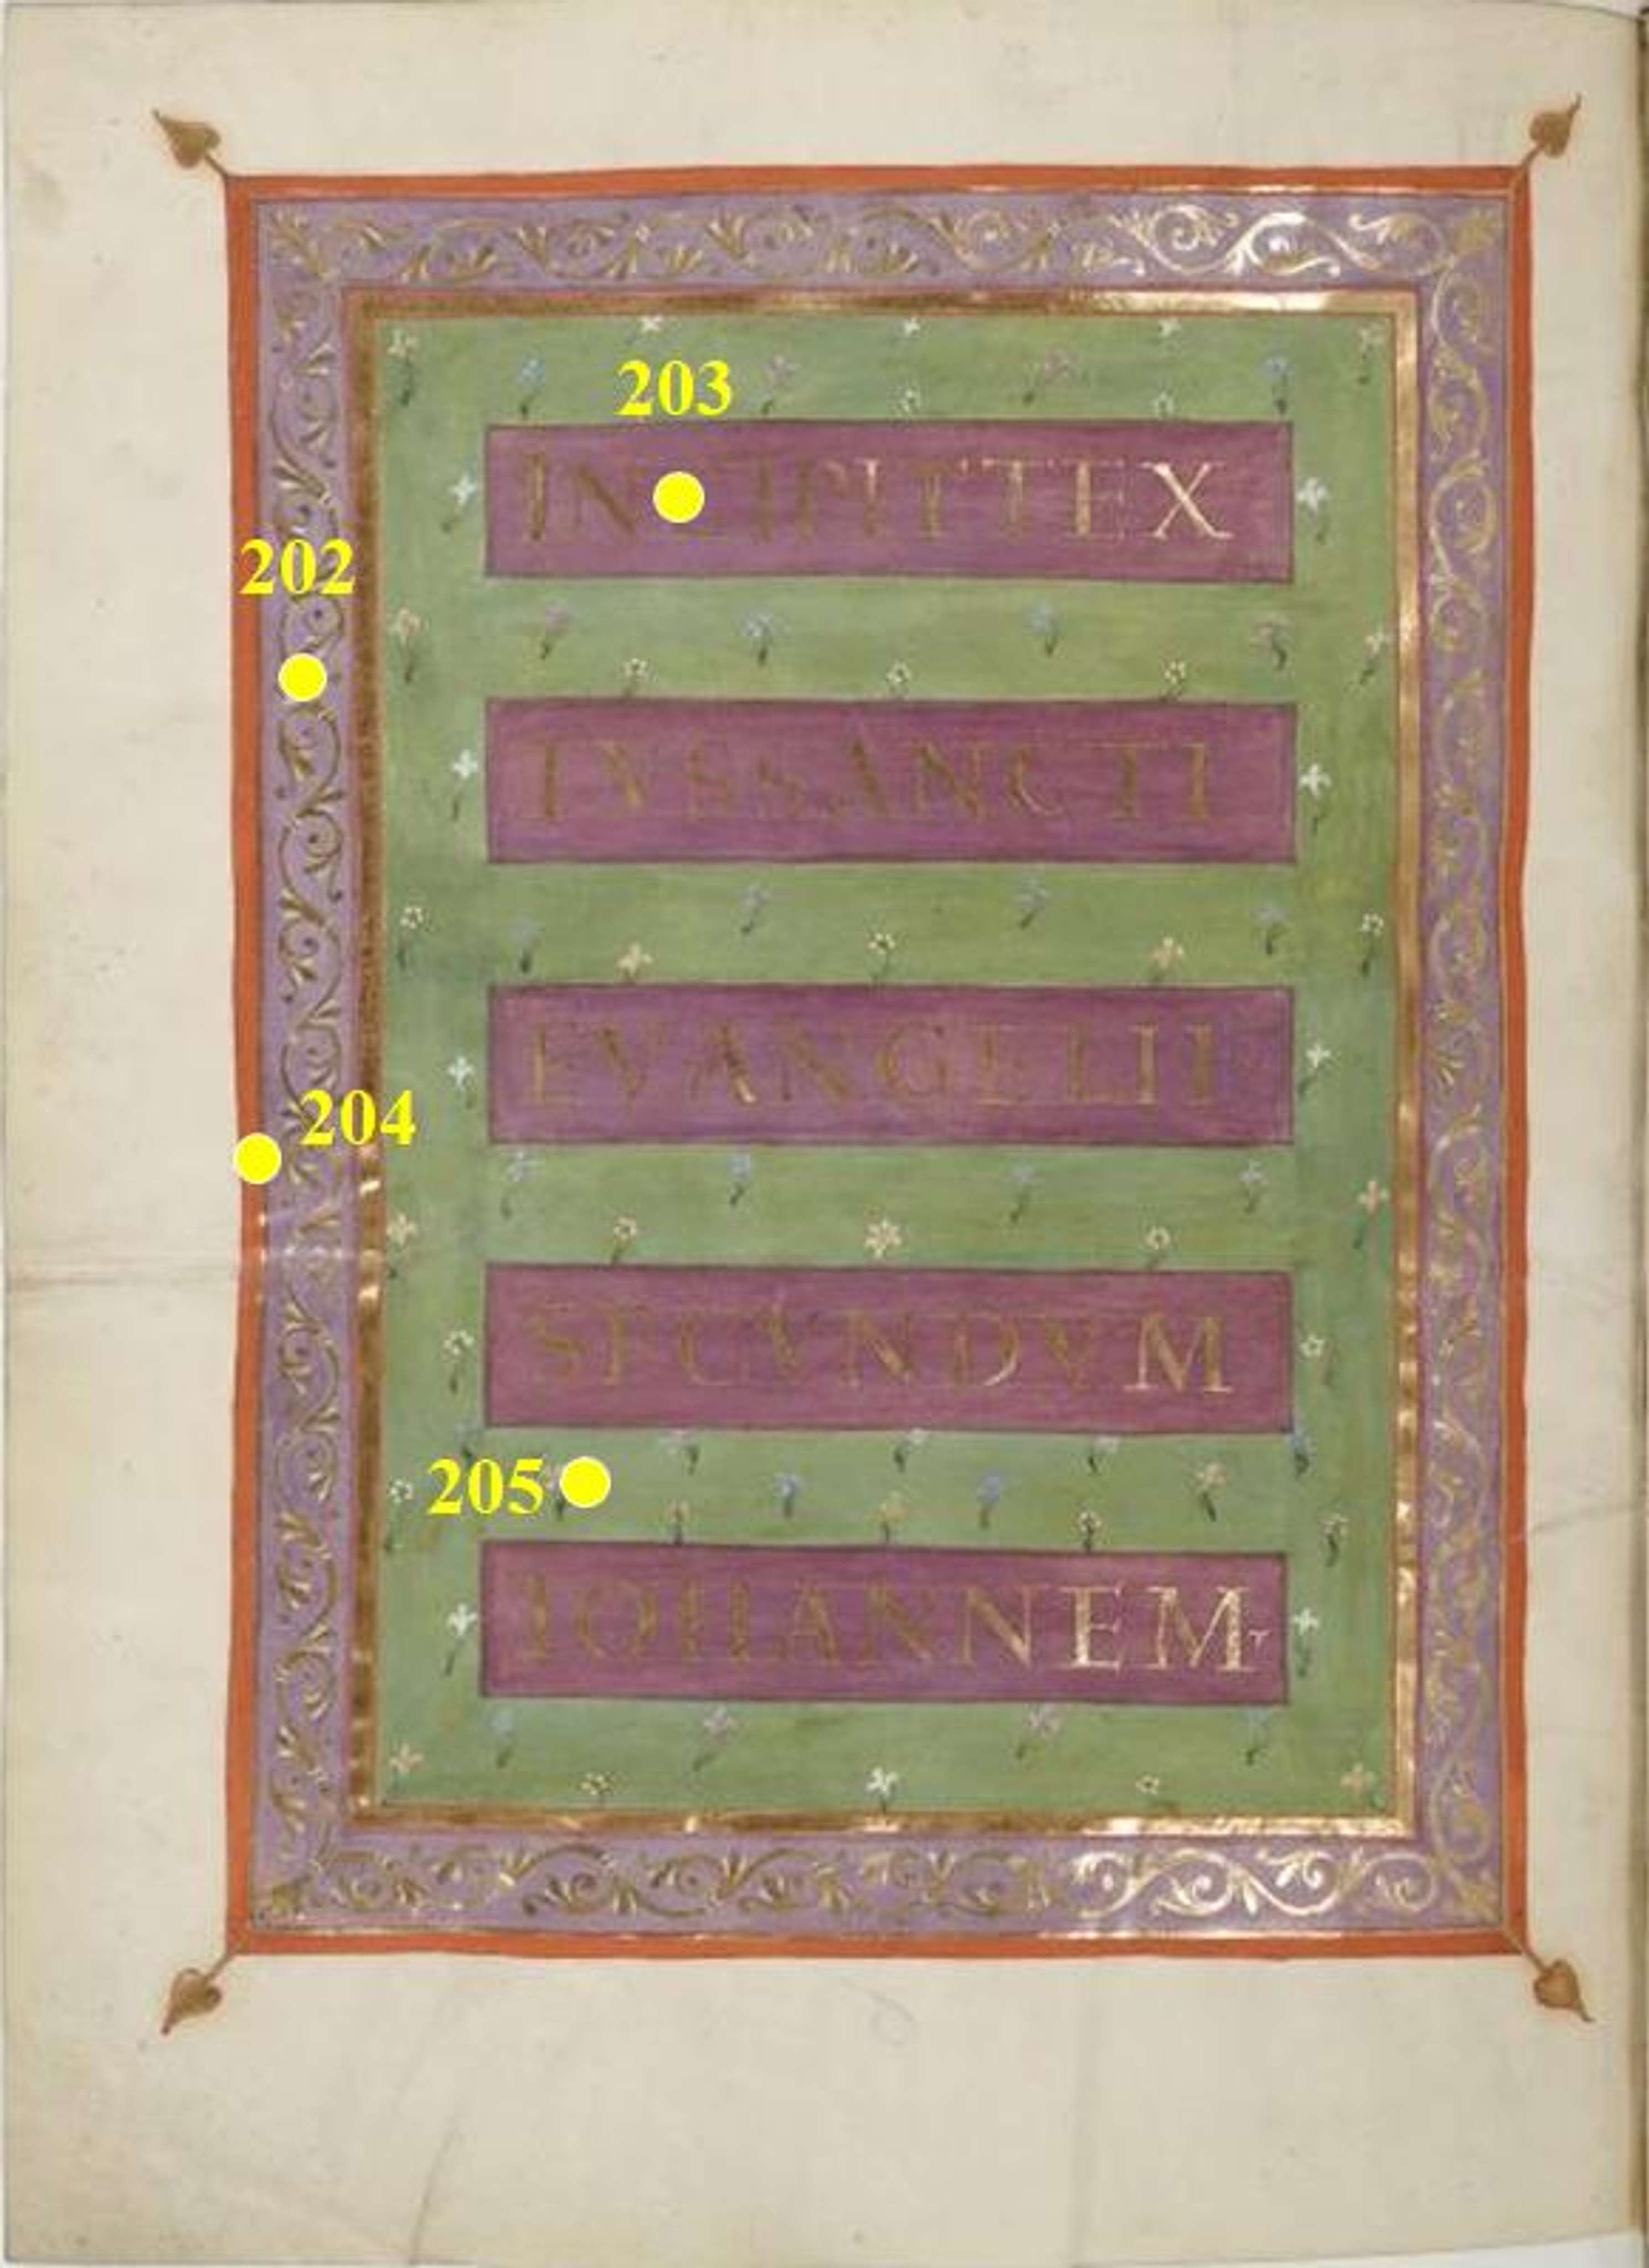 203
INCIPITTEX
202
TVSSANCTI
EVANGELII
204
SECVNDVM
205
IOHANNEM